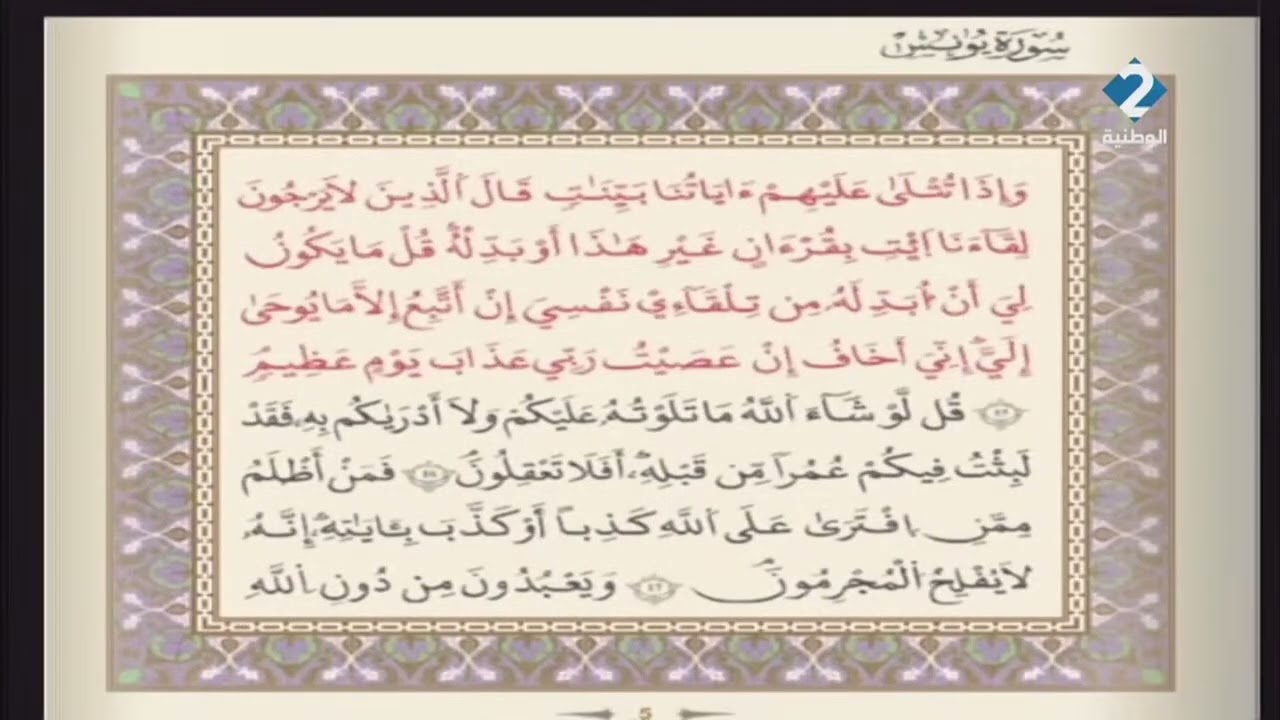 سُورَةُ يُونِسَ
2
الوطنية
وَإِذَا تُتْلَىٰ عَلَيْهِمْ ءَايَاتُنَا بَيِّنَٰتٍ قَالَ اَ۬لَّذِينَ لَا يَرْجُونَ
لِقَآءَنَا اَ۪يتِ بِقُرْءَانٍ غَيْرِ هَٰذَا أَوْ بَدِّلْهُۖ قُلْ مَا يَكُونُ
لِيَ أَنْ ا۟بَدِّلَهُۥ مِن تِلْقَآءِےْ نَفْسِيَ إِنْ أَتَّبِعُ إِلَّا مَا يُوحَىٰ
إِلَيَّۖ إِنِّيَ أَخَافُ إِنْ عَصَيْتُ رَبِّي عَذَابَ يَوْمٍ عَظِيمٍ
قُل لَّوْ شَآءَ اَ۬للَّهُ مَا تَلَوْتُهُۥ عَلَيْكُمْ وَلَا أَدْرَيٰكُم بِهِۦ فَقَدْ
لَبِثْتُ فِيكُمْ عُمُراً مِّن قَبْلِهِۦۖ أَفَلَا تَعْقِلُونَۖ فَمَنْ أَظْلَمُ
مِمَّنِ اِ۪فْتَرَىٰ عَلَى اَ۬للَّهِ كَذِباً أَوْ كَذَّبَ بِـَٔايَٰتِهِۦۖ إِنَّهُۥ
لَا يُفْلِحُ اُ۬لْمُجْرِمُونَۖ وَيَعْبُدُونَ مِن دُونِ اِ۬للَّهِ
5